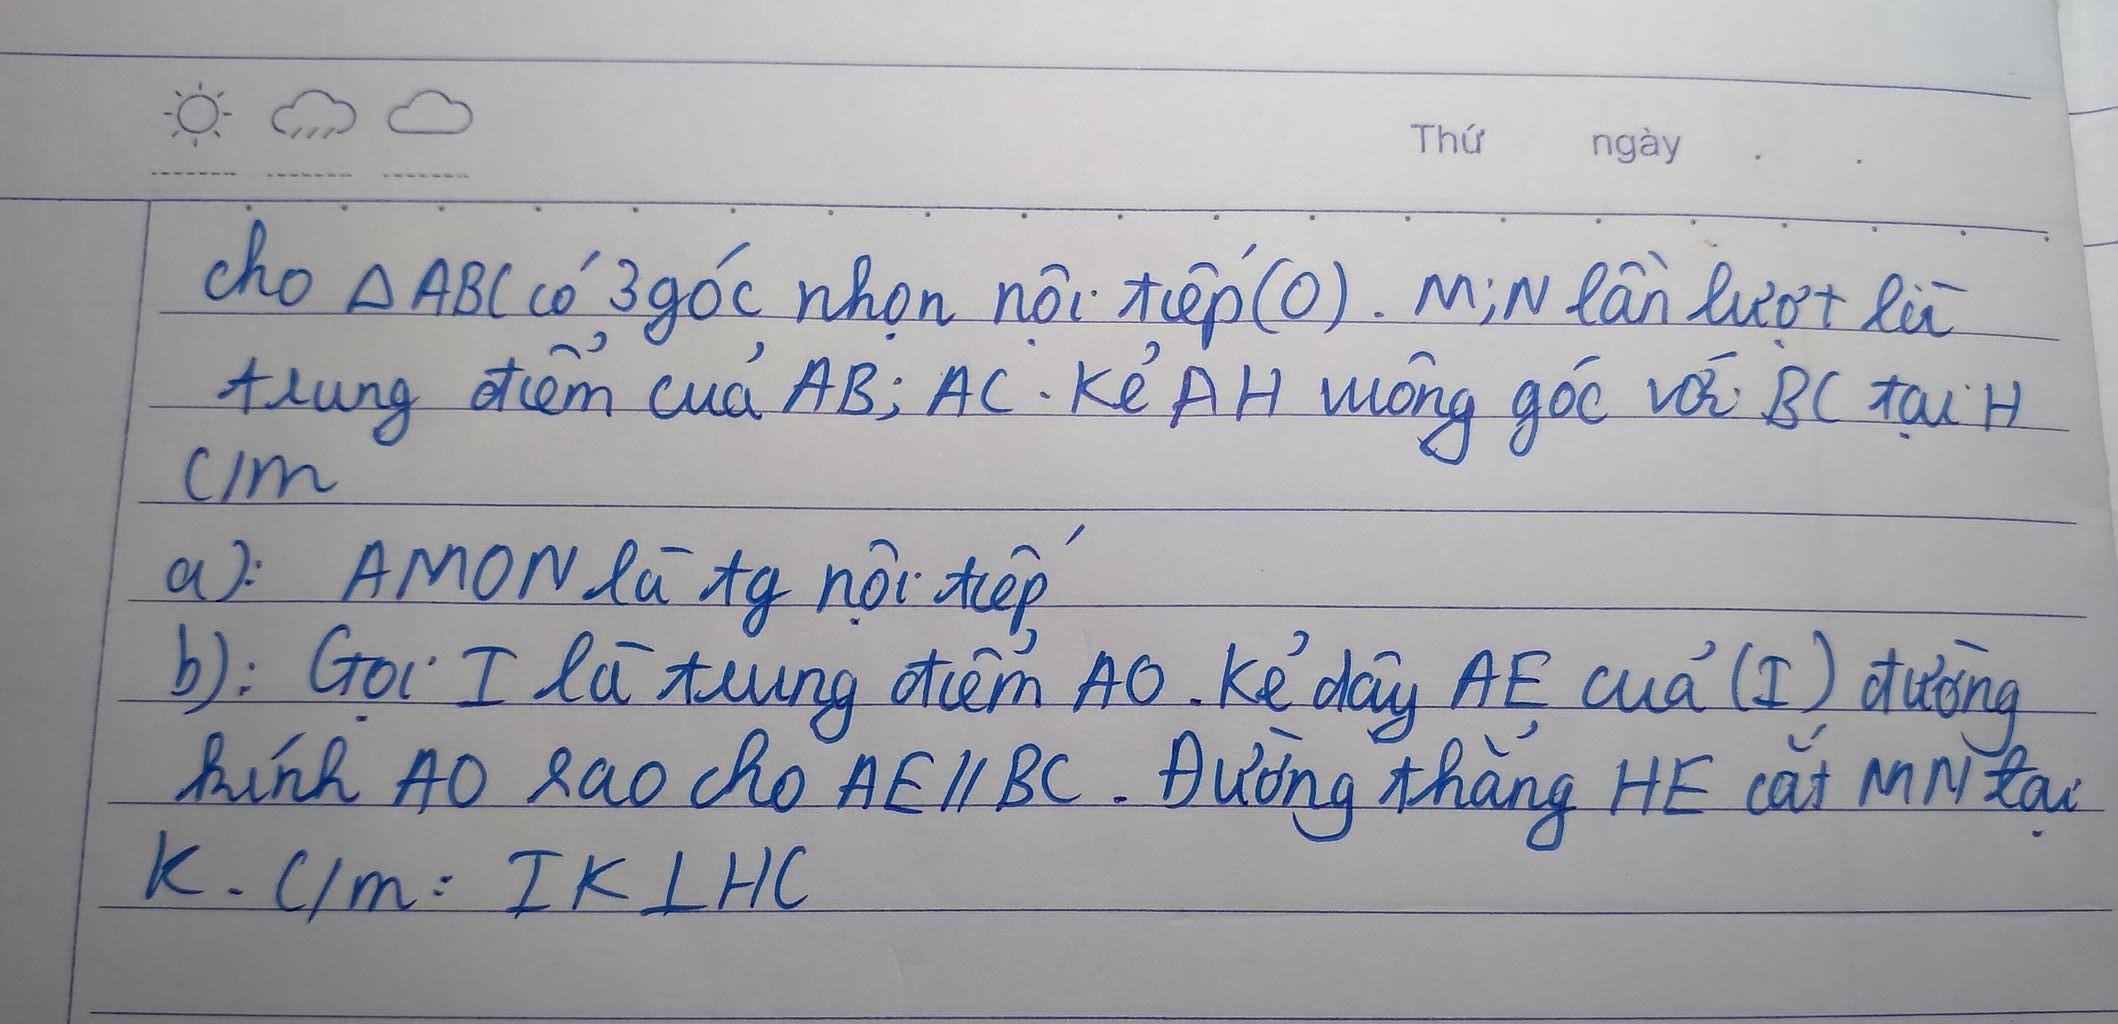 Thứ ngày . .
cho △ABC có 3 góc nhọn nội tiếp (O). M;N lần lượt là
trung điểm của AB; AC. Kẻ AH vuông góc với BC tại H
C/m
a): AMON là tg nội tiếp
b): Gọi I là trung điểm AO. Kẻ dây AE của (I) đường
kính AO sao cho AE//BC. Đường thẳng HE cắt MN tại
K. C/m: IK⊥HC